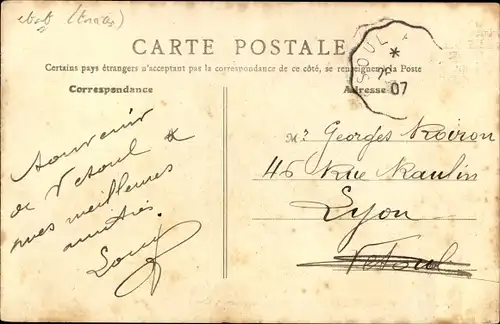 CARTE POSTALE
Certains pays étrangers n'acceptant pas la correspondance de ce côté, se renseigner à la Poste
Correspondance
Adresse
SOUL
07
Souvenir
de Vesoul &
mes meilleures
amitiés
Mr Georges Noiron
46 Rue Raulin
Lyon
Vesoul